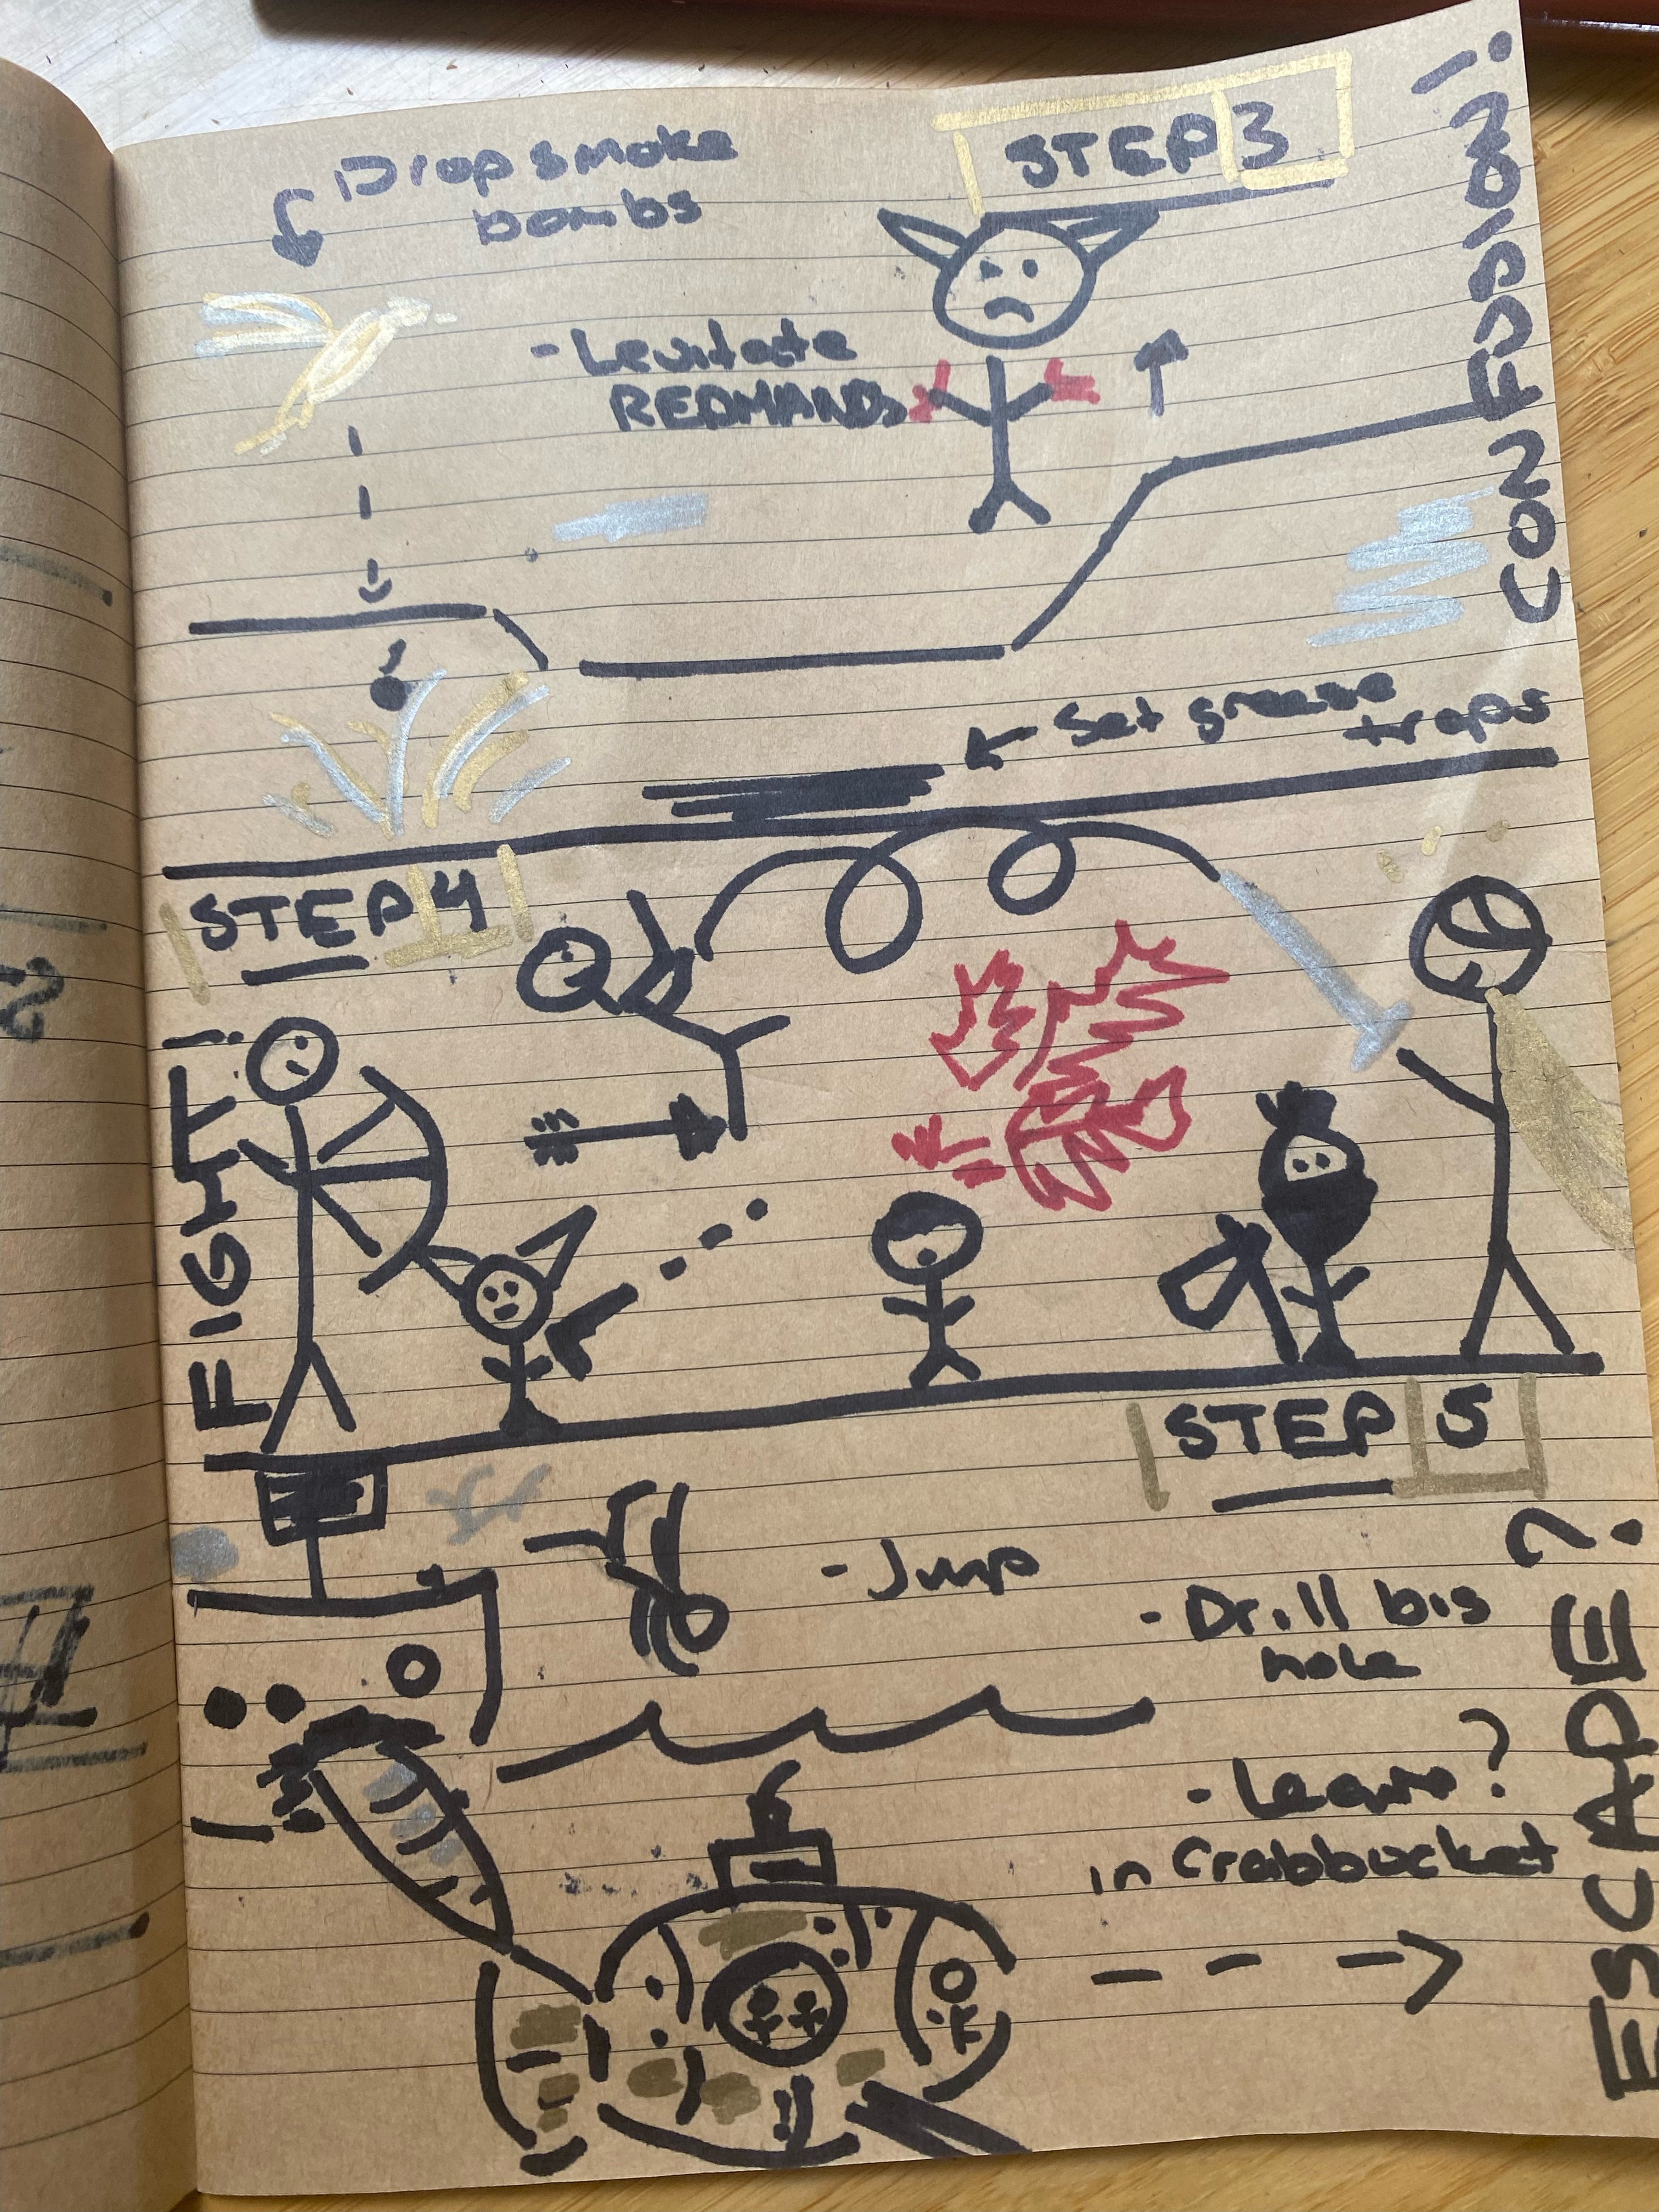 STEP 3
Drop smoke
bombs
CONFUSION!
- Levitate
REDHANDS
Set grease
traps
STEP 4
FIGHT!
STEP 5
- Jump
- Drill big
hole
ESCAPE?!
- Leave?
in Crabbucket